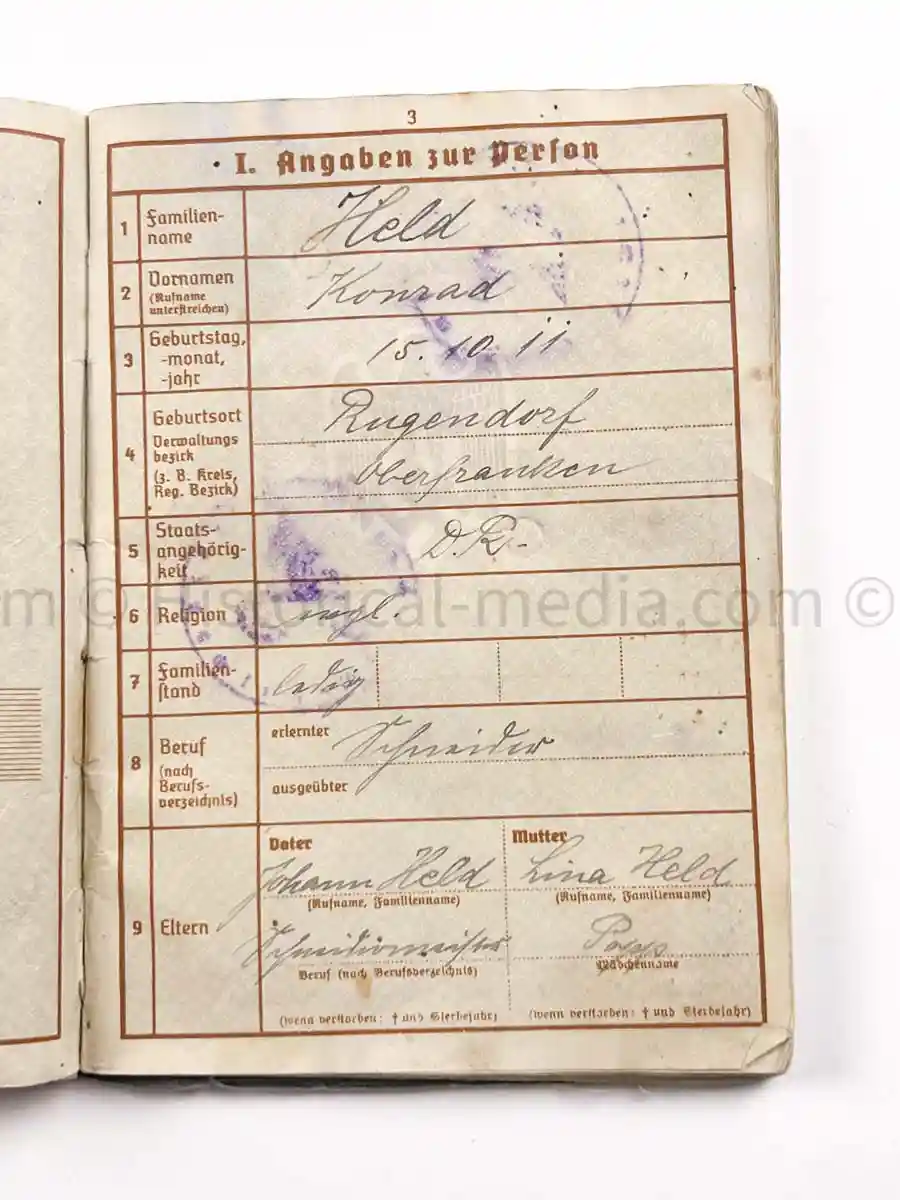 3
I. Angaben zur Person
1 Familien-
name
Held
2 Vornamen
(Rufname
unterstreichen)
Konrad
3 Geburtstag,
-monat,
-jahr
15.10.11
4 Geburtsort
Verwaltungs
bezirk
(z. B. Kreis,
Reg. Bezirk)
Rugendorf
Oberfranken
5 Staats-
angehörig-
keit
D.R.
6 Religion
evgl.
m © Historical-media.com ©
7 Familien-
stand
ledig
8 Beruf
(nach
Berufs-
verzeichnis)
erlernter Schneider
ausgeübter
9 Eltern
Vater
Johann Held
(Rufname, Familienname)
Schneidermeister
Beruf (nach Berufsverzeichnis)
(wenn verstorben: † und Sterbejahr)
Mutter
Lina Held
(Rufname, Familienname)
Mädchenname
(wenn verstorben: † und Sterbejahr)